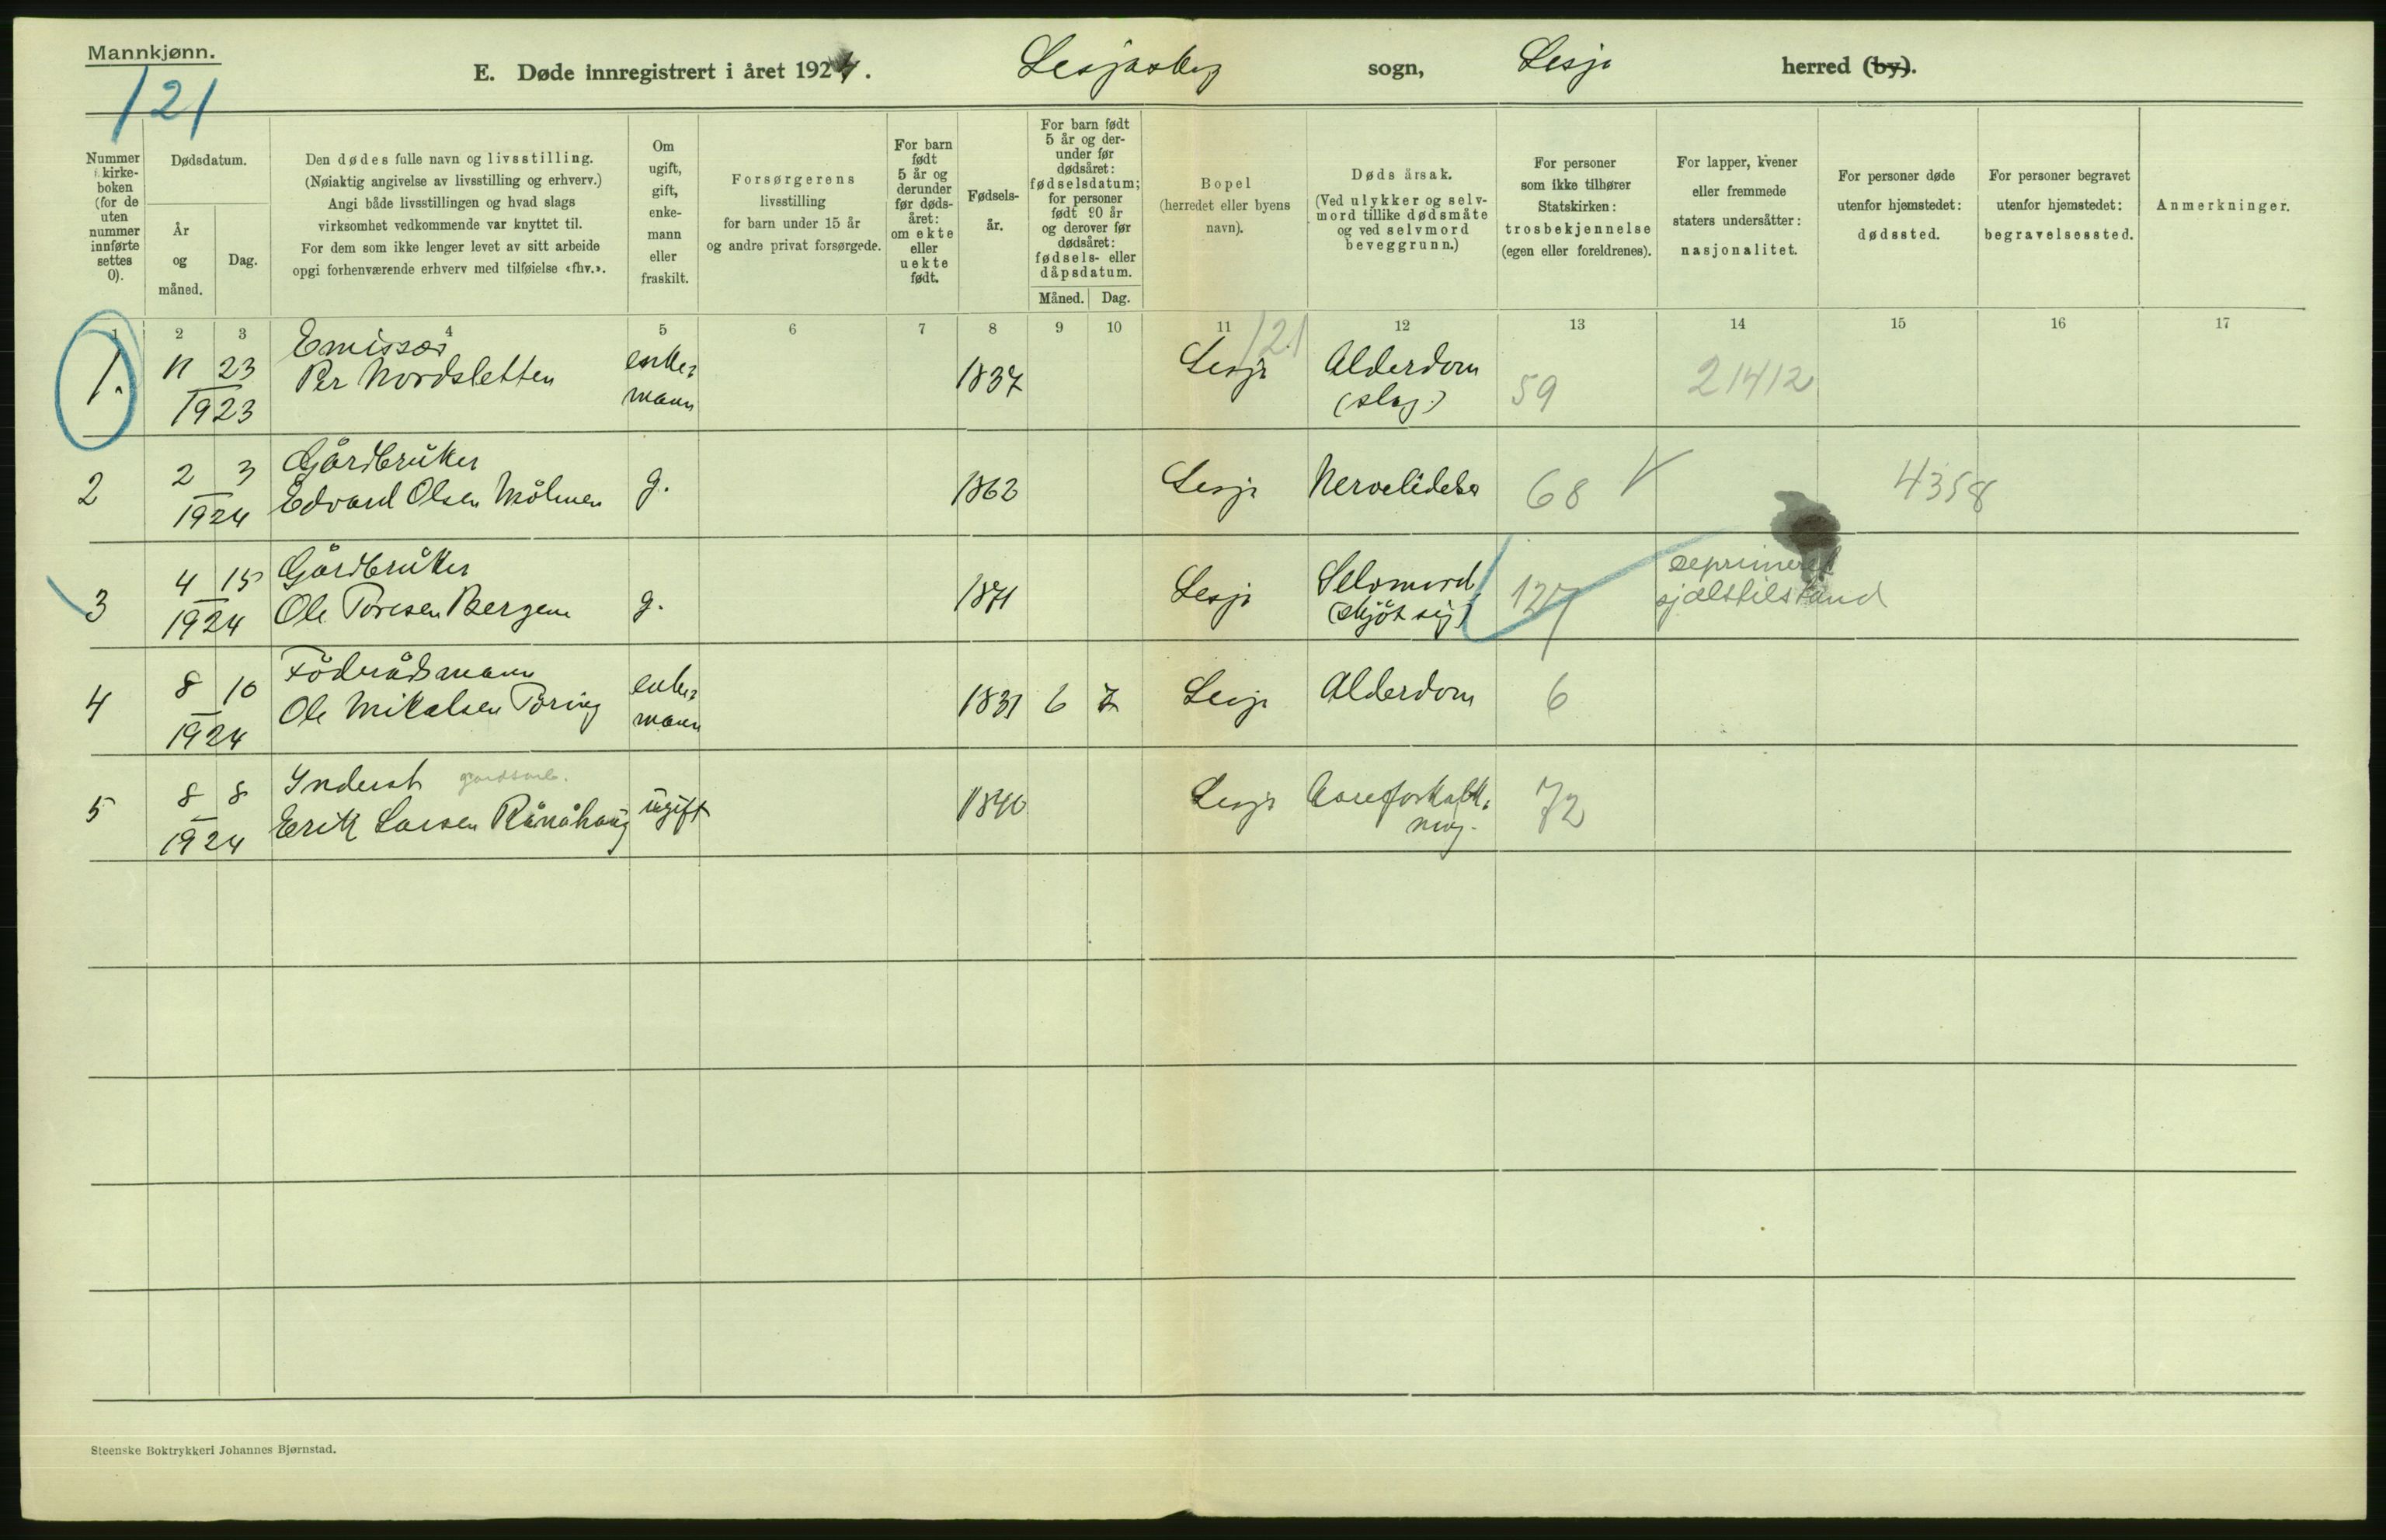 Mannkjønn.
121
E. Døde innregistrert i året 1924. Lesjaskog sogn, Lesja herred (by).
Nummer i kirkeboken (for de uten nummer innførte settes 0).
Dødsdatum.
År og måned.
Dag.
Den dødes fulle navn og livsstilling.
(Nøiaktig angivelse av livsstilling og erhverv.)
Angi både livsstillingen og hvad slags
virksomhet vedkommende var knyttet til.
For dem som ikke lenger levet av sitt arbeide
opgi forhenværende erhverv med tilføielse «fhv.».
Om ugift, gift, enkemann eller fraskilt.
Forsørgerens
livsstilling
for barn under 15 år
og andre privat forsørgede.
For barn født 5 år og derunder før dødsåret: om ekte eller uekte født.
Fødselsår.
For barn født 5 år og derunder før dødsåret: fødselsdatum; for personer født 90 år og derover før dødsåret: fødsels- eller dåpsdatum.
Måned. Dag.
Bopel
(herredet eller byens
navn).
Døds årsak.
(Ved ulykker og selvmord tillike dødsmåte og ved selvmord beveggrunn.)
For personer
som ikke tilhører
Statskirken:
trosbekjennelse
(egen eller foreldrenes).
For lapper, kvener
eller fremmede
staters undersåtter:
nasjonalitet.
For personer døde
utenfor hjemstedet:
dødssted.
For personer begravet
utenfor hjemstedet:
begravelsessted.
Anmerkninger.
1 2 3 4 5 6 7 8 9 10 11 12 13 14 15 16 17
121
1. 11 23 1923 Emissær Per Nordsletten enkemann 1837 Lesja Alderdom (slag.) 59 21412
2 2 3 1924 Gårdbruker Edvard Olsen Mølmen g. 1863 Lesja Nervelidelse 68 4358
3 4 15 1924 Gårdbruker Ole Toresen Bergem g. 1871 Lesja Selvmord (skjöt sig) 127 deprimeret sjælstilstand
4 8 10 1924 Föderådsmann Ole Mikalsen Töring enkemann 1831 6 7 Lesja Alderdom 6
5 8 8 1924 Inderst gaardsarb. Erik Larsen Rånåhaug ugift 1840 Lesja Aareforkalkning. 72
Steenske Boktrykkeri Johannes Bjørnstad.